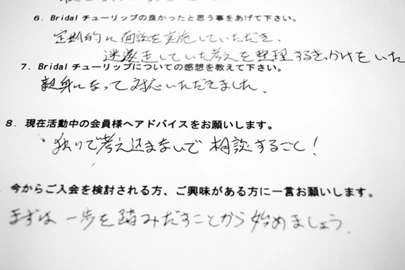 6．Bridal チューリップの良かったと思う事をあげて下さい。
定期的に面談を実施していただき、
迷走していた考えを整理するきっかけをいた
7．Bridal チューリップについての感想を教えて下さい。
親身になって対応いただきました。
8．現在活動中の会員様へアドバイスをお願いします。
独りで考え込まないで相談すること！
今からご入会を検討される方、ご興味がある方に一言お願いします。
まずは一歩を踏みだすことから始めましょう。